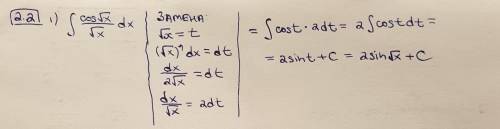 2.2 1) ∫ cos√x/√x dx
ЗАМЕНА:
√x = t
(√x)' dx = dt
dx/2√x = dt
dx/√x = 2dt
= ∫ cost · 2dt = 2 ∫ cost dt =
= 2sint + C = 2sin√x + C